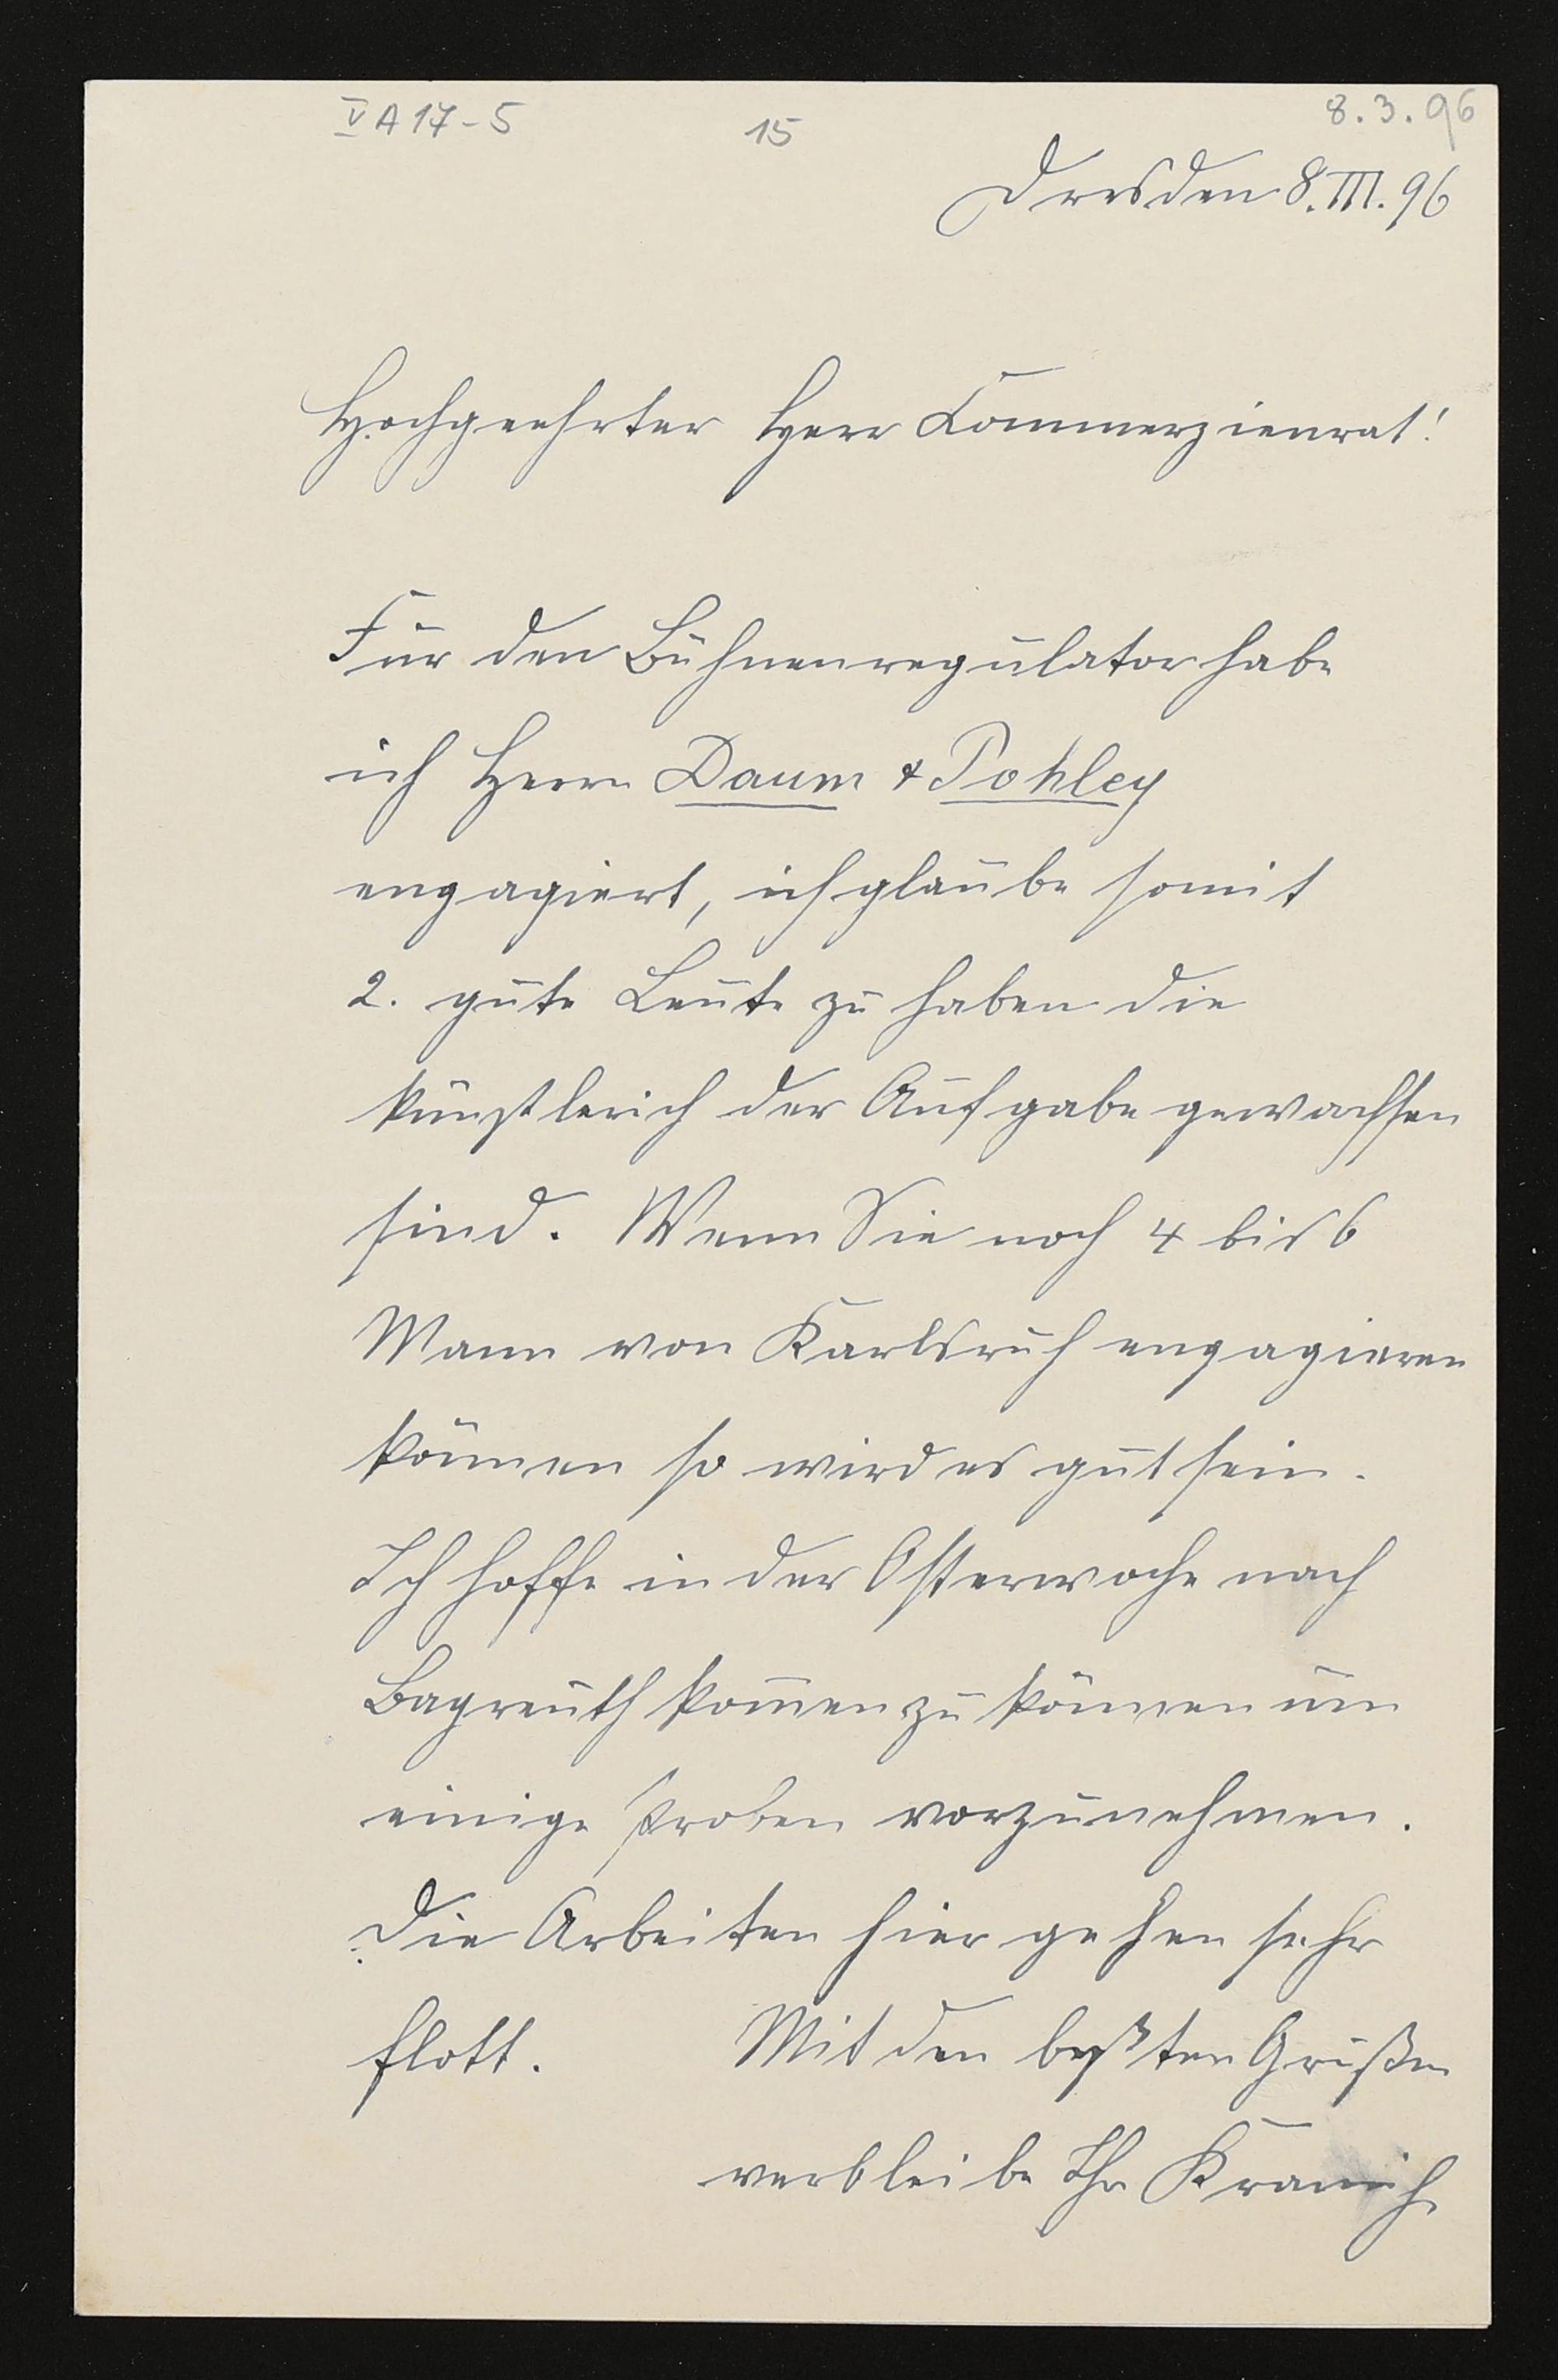 V A 17-5 15 8.3.96
Dresden 8. III. 96
Hochgeehrter Herr Commerzienrat!
Für den Bühnenregulator habe
ich Herrn Daum & Pohley
engagiert, ich glaube somit
2. gute Leute zu haben die
künstlerich der Aufgabe gewachsen
sind. Wenn Sie noch 4 bis 6
Mann von Karlsruh engagieren
können so wird es gut sein.
Ich hoffe in der Osterwoche nach
Bayreuth kom̄en zu können um
einige Proben vorzunehmen.
Die Arbeiten hier gehen sehr
flott. Mit den besten Grüßen
verbleibe Ihr Kranich